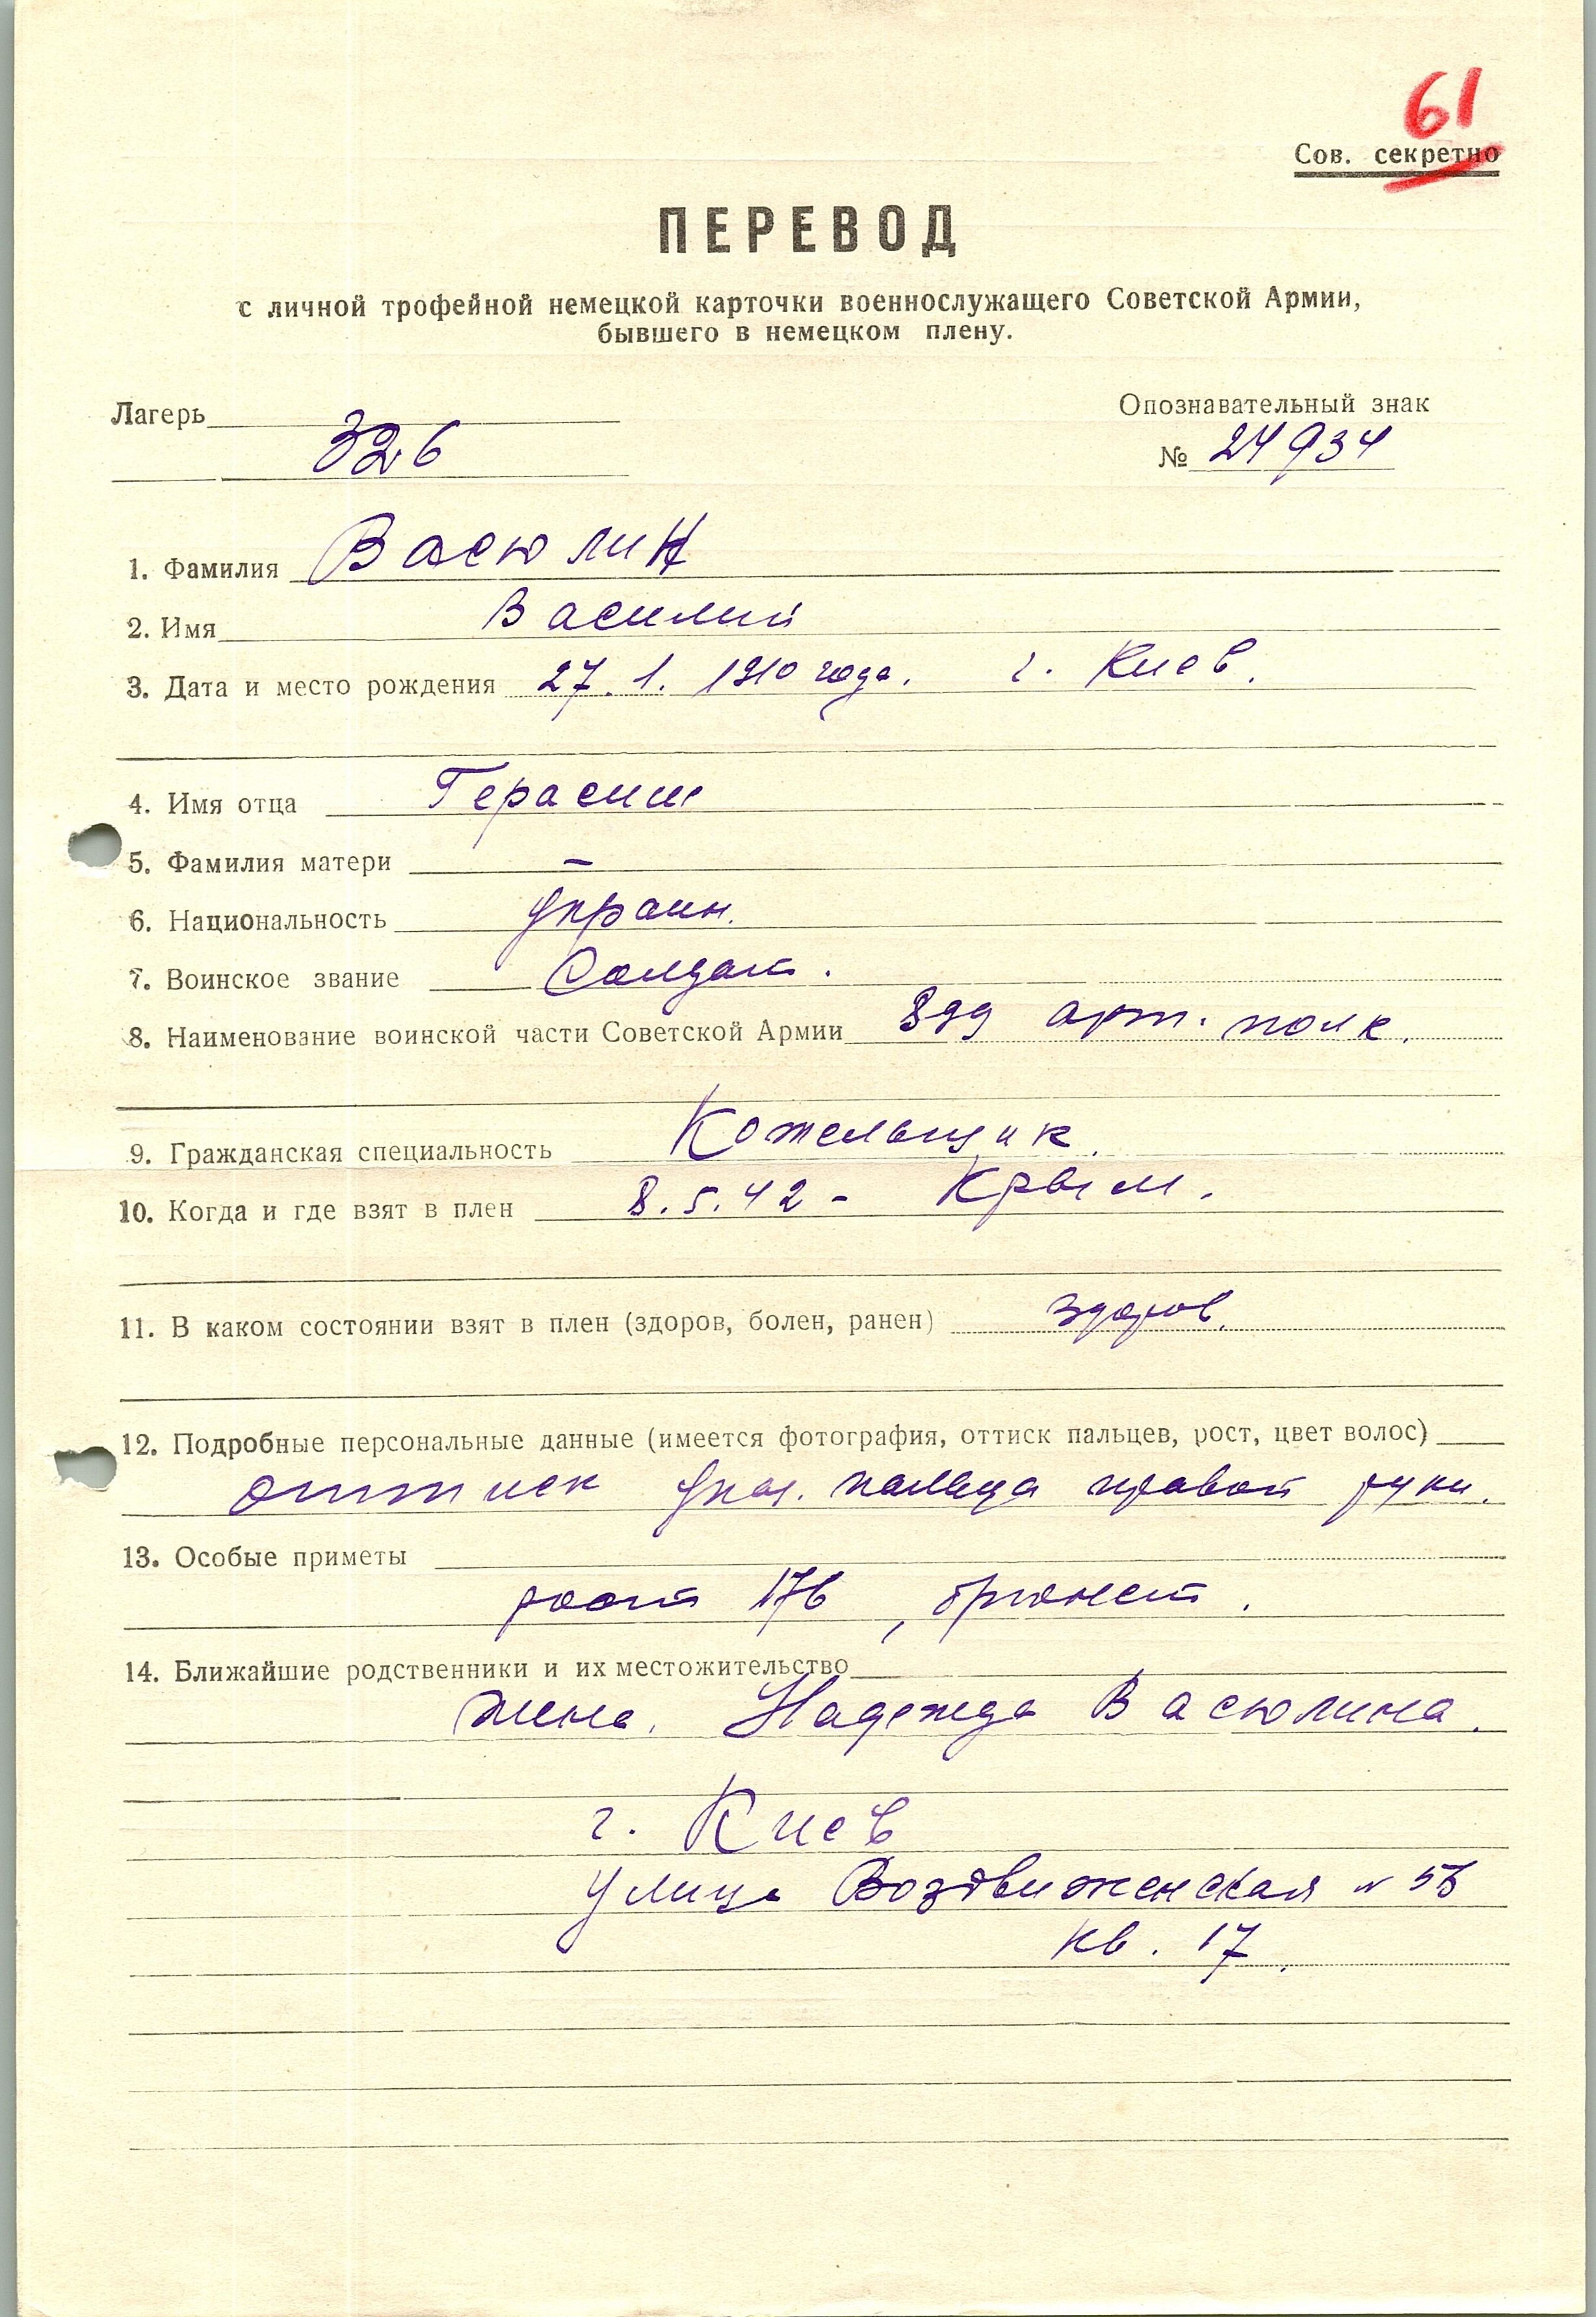 61
Сов. секретно
ПЕРЕВОД
с личной трофейной немецкой карточки военнослужащего Советской Армии,
бывшего в немецком плену.
Лагерь
326
Опознавательный знак
№ 24934
1. Фамилия Васюлин
2. Имя Василий
3. Дата и место рождения 27.1.1910 года. г. Киев.
4. Имя отца Герасим
5. Фамилия матери —
6. Национальность Украин.
7. Воинское звание Солдат.
8. Наименование воинской части Советской Армии 899 арт. полк.
9. Гражданская специальность Котельщик.
10. Когда и где взят в плен 8.5.42 - Крым.
11. В каком состоянии взят в плен (здоров, болен, ранен) здоров.
12. Подробные персональные данные (имеется фотография, оттиск пальцев, рост, цвет волос)
оттиск указ. пальца правой руки.
13. Особые приметы
рост 176, брюнет.
14. Ближайшие родственники и их местожительство
жена. Надежда Васюлина.
г. Киев
улица Воздвиженская №
кв. 17.